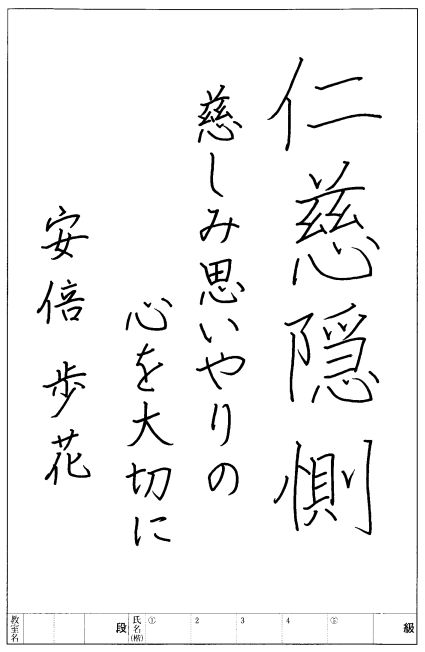 仁慈隠惻
慈しみ思いやりの
心を大切に
安倍 歩花
教室名 段 氏名(横) ① 2 3 4 ⑤ 級